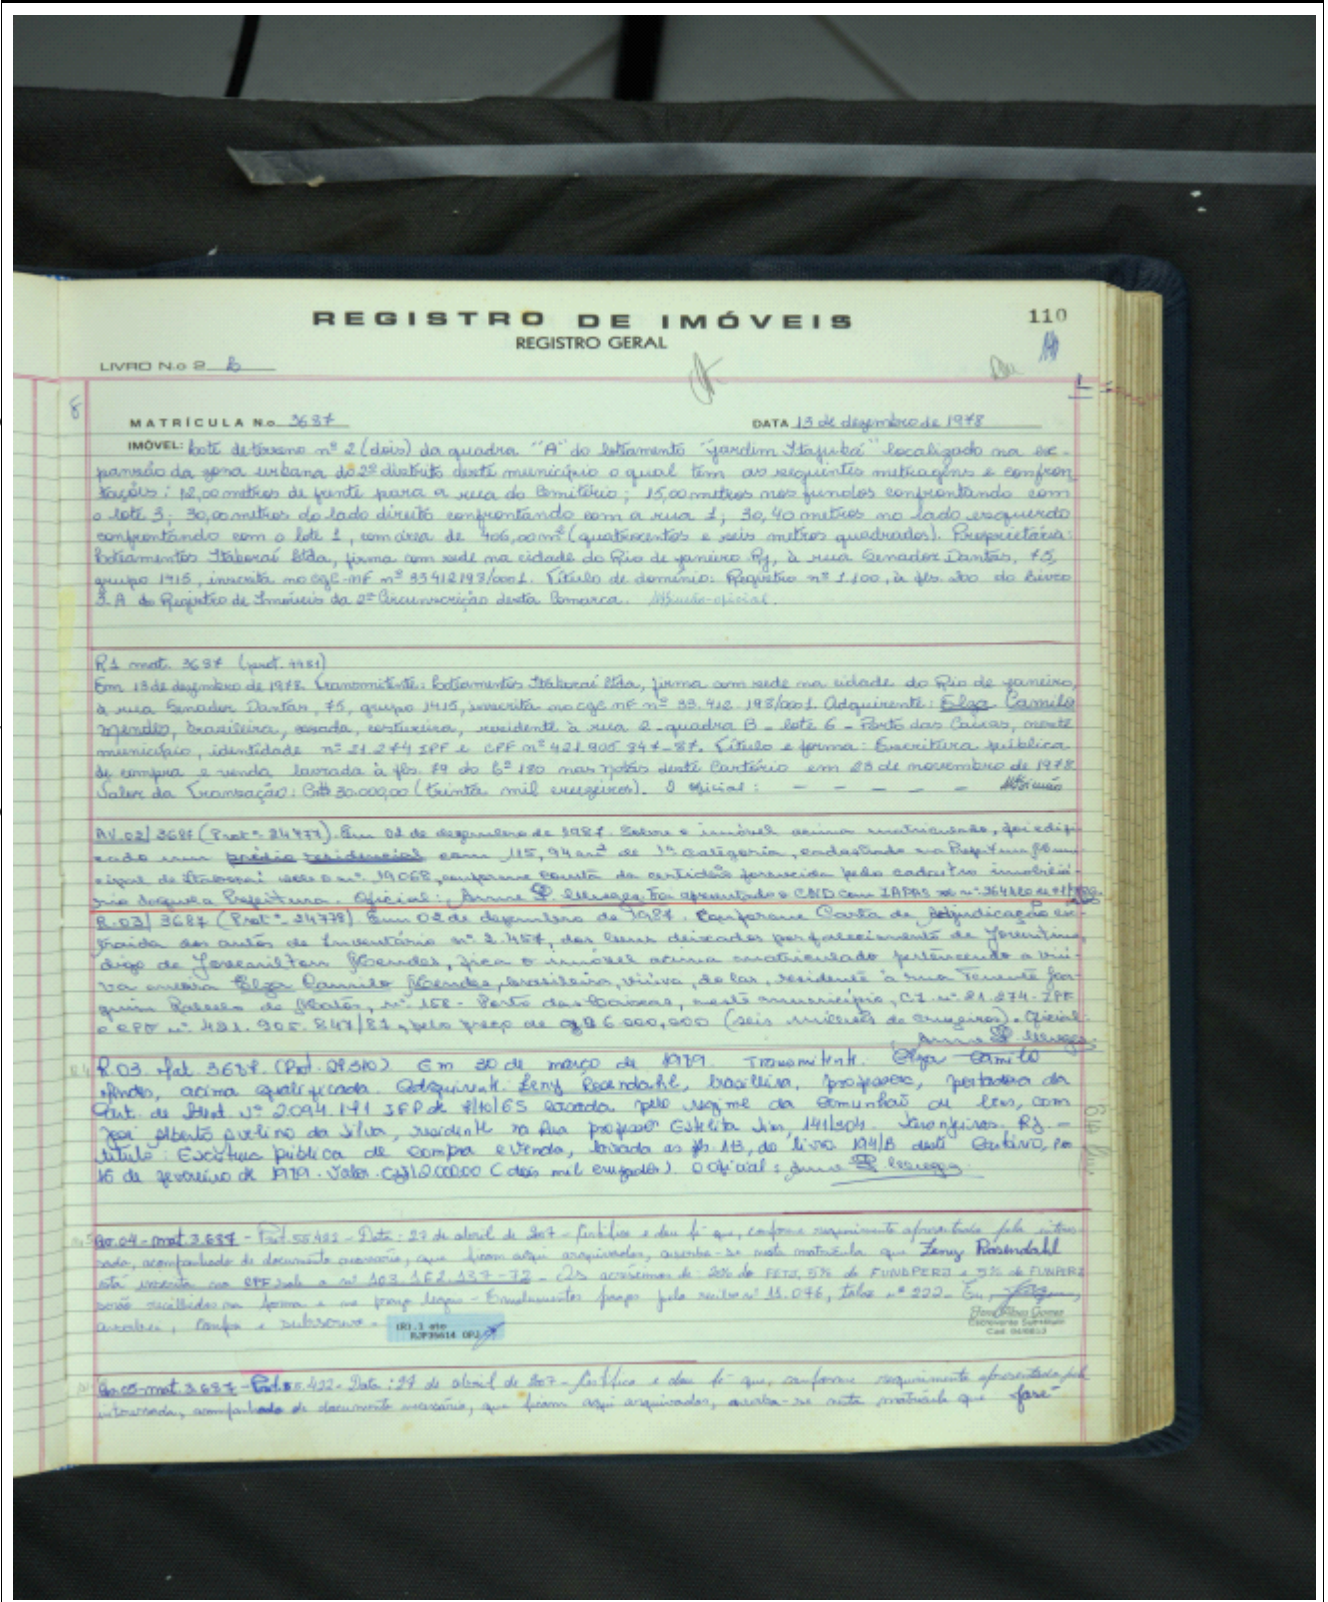 REGISTRO DE IMÓVEIS
110
REGISTRO GERAL
LIVRO N.o 2
MATRÍCULA N.o 3687
DATA 13 de dezembro de 1978
IMÓVEL: Lote de terreno nº 2 (dois) da quadra "A" do loteamento "Jardim Itajubá" localizado na ex-
pansão da zona urbana do 2º distrito deste município o qual tem as seguintes metragens e confron
tações: 12,00 metros de frente para a rua do Cemitério; 15,00 metros nos fundos confrontando com
o lote 3; 30,00 metros do lado direito confrontando com a rua 1; 30,40 metros no lado esquerdo
confrontando com o lote 1, com área de 406,00m² (quatrocentos e seis metros quadrados). Proprietária:
Loteamentos Itaboraí Ltda, firma com sede na cidade do Rio de Janeiro RJ, à rua Senador Dantas, 75,
grupo 1415, inscrita no CGC-MF nº 33412198/0001. Título de domínio: Registro nº 1.100, à fls. 200 do Livro
3.A do Registro de Imóveis da 2ª Circunscrição desta Comarca. oficial.
R1 mat. 3687 (prot. 4481)
Em 13 de dezembro de 1978. Transmitente: Loteamentos Itaboraí Ltda, firma com sede na cidade do Rio de Janeiro,
à rua Senador Dantas, 75, grupo 1415, inscrita no CGC MF nº 33.412.198/0001. Adquirente: Elza Camilo
Mendes, brasileira, casada, costureira, residente à rua 2 - quadra B - lote 6 - Porto das Caixas, neste
município, identidade nº 21.274 IPF e CPF nº 421.905.847-87. Título e forma: Escritura pública
de compra e venda lavrada à fls. 79 do Lº 180 nas notas deste Cartório em 23 de novembro de 1978
Valor da Transação: Cr$ 30.000,00 (trinta mil cruzeiros). O oficial: - - - - -
AV.02/3687 (Protº. 24777). Em 02 de dezembro de 1987. Sobre o imóvel acima matriculado, foi edifi
cado um prédio residencial com 115,94m² de 1ª categoria, cadastrado na Prefeitura Muni
cipal de Itaboraí sob o nº 19068, conforme consta da certidão fornecida pelo cadastro imobiliá-
rio daquela Prefeitura. Oficial: Foi apresentado o CND com IAPAS
R.03/3687 (Protº. 24778) Em 02 de dezembro de 1987. Conforme Carta de Adjudicação ex-
traída dos autos de Inventário nº 2.457, dos bens deixados por falecimento de
digo de Mendes, fica o imóvel acima matriculado pertencendo a viú-
va meeira Elza Camilo Mendes, brasileira, viúva, do lar, residente à rua Tenente Joa-
quim de Matos, nº 158 - Porto das Caixas, neste município, C.I. nº 21.274-IPF
e CPF nº 421.905.847/87, pelo preço de 6.000,000 (seis milhões de cruzeiros). Oficial:
R.03. Mat. 3687. (Prot. ) Em 30 de março de 1989. Transmitente. Elza Camilo
Mendes, acima qualificada. Adquirente: Zeny Rosendahl, brasileira, professora, portadora da
Cart. de Ident. Nº 2094.191 IFP de 7/10/65 casada pelo regime da comunhão de bens, com
José Alberto Avelino da Silva, residente na Rua professor Estelita Lins, 141/304. Laranjeiras. RJ. -
título: Escritura pública de compra e venda, lavrada as fls 18, do livro 194/B deste Cartório, em
16 de fevereiro de 1989. Valor. (dois mil cruzados) O Oficial:
Av.04-mat.3.687 - Prot. 55.421 - Data: 27 de abril de 2007 - Certifico e dou fé que, conforme requerimento apresentado pela interes-
sada, acompanhado de documento necessário, que ficam aqui arquivados, averba-se nesta matrícula que Zeny Rosendahl
está inscrita no CPF sob o nº 103.162.137-72 - Os acréscimos de: 20% do FETJ, 5% do FUNDPERJ e 5% do FUNPERJ
serão recolhidos na forma e no prazo legais - Emolumentos pagos pelo recibo nº 11.076, talão nº 222. Eu,
averbei, e subscrevo -
(R).1 ato
RJP39614 ORJ
Escrevente Substituto
Av.05-mat.3.687 - Prot. 55.422 - Data: 27 de abril de 2007 - Certifico e dou fé que, conforme requerimento apresentado pela
interessada, acompanhado de documento necessário, que ficam aqui arquivados, averba-se nesta matrícula que José